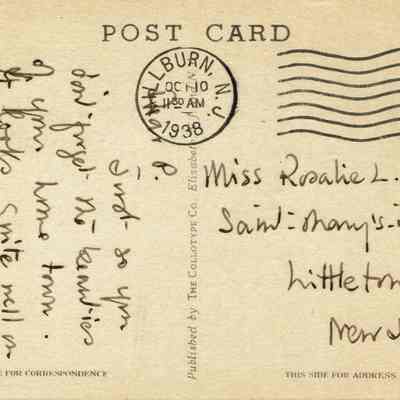 POST CARD
MILLBURN, N.J.
OCT 10
11:30 AM
1938
P.
Just so you
don't forget the beauties
of your home town.
It looks quite well
Published by THE COLLOTYPE Co. Elizabeth
Miss Rosalie L.
Saint-Mary's-
Littleton
New
FOR CORRESPONDENCE
THIS SIDE FOR ADDRESS